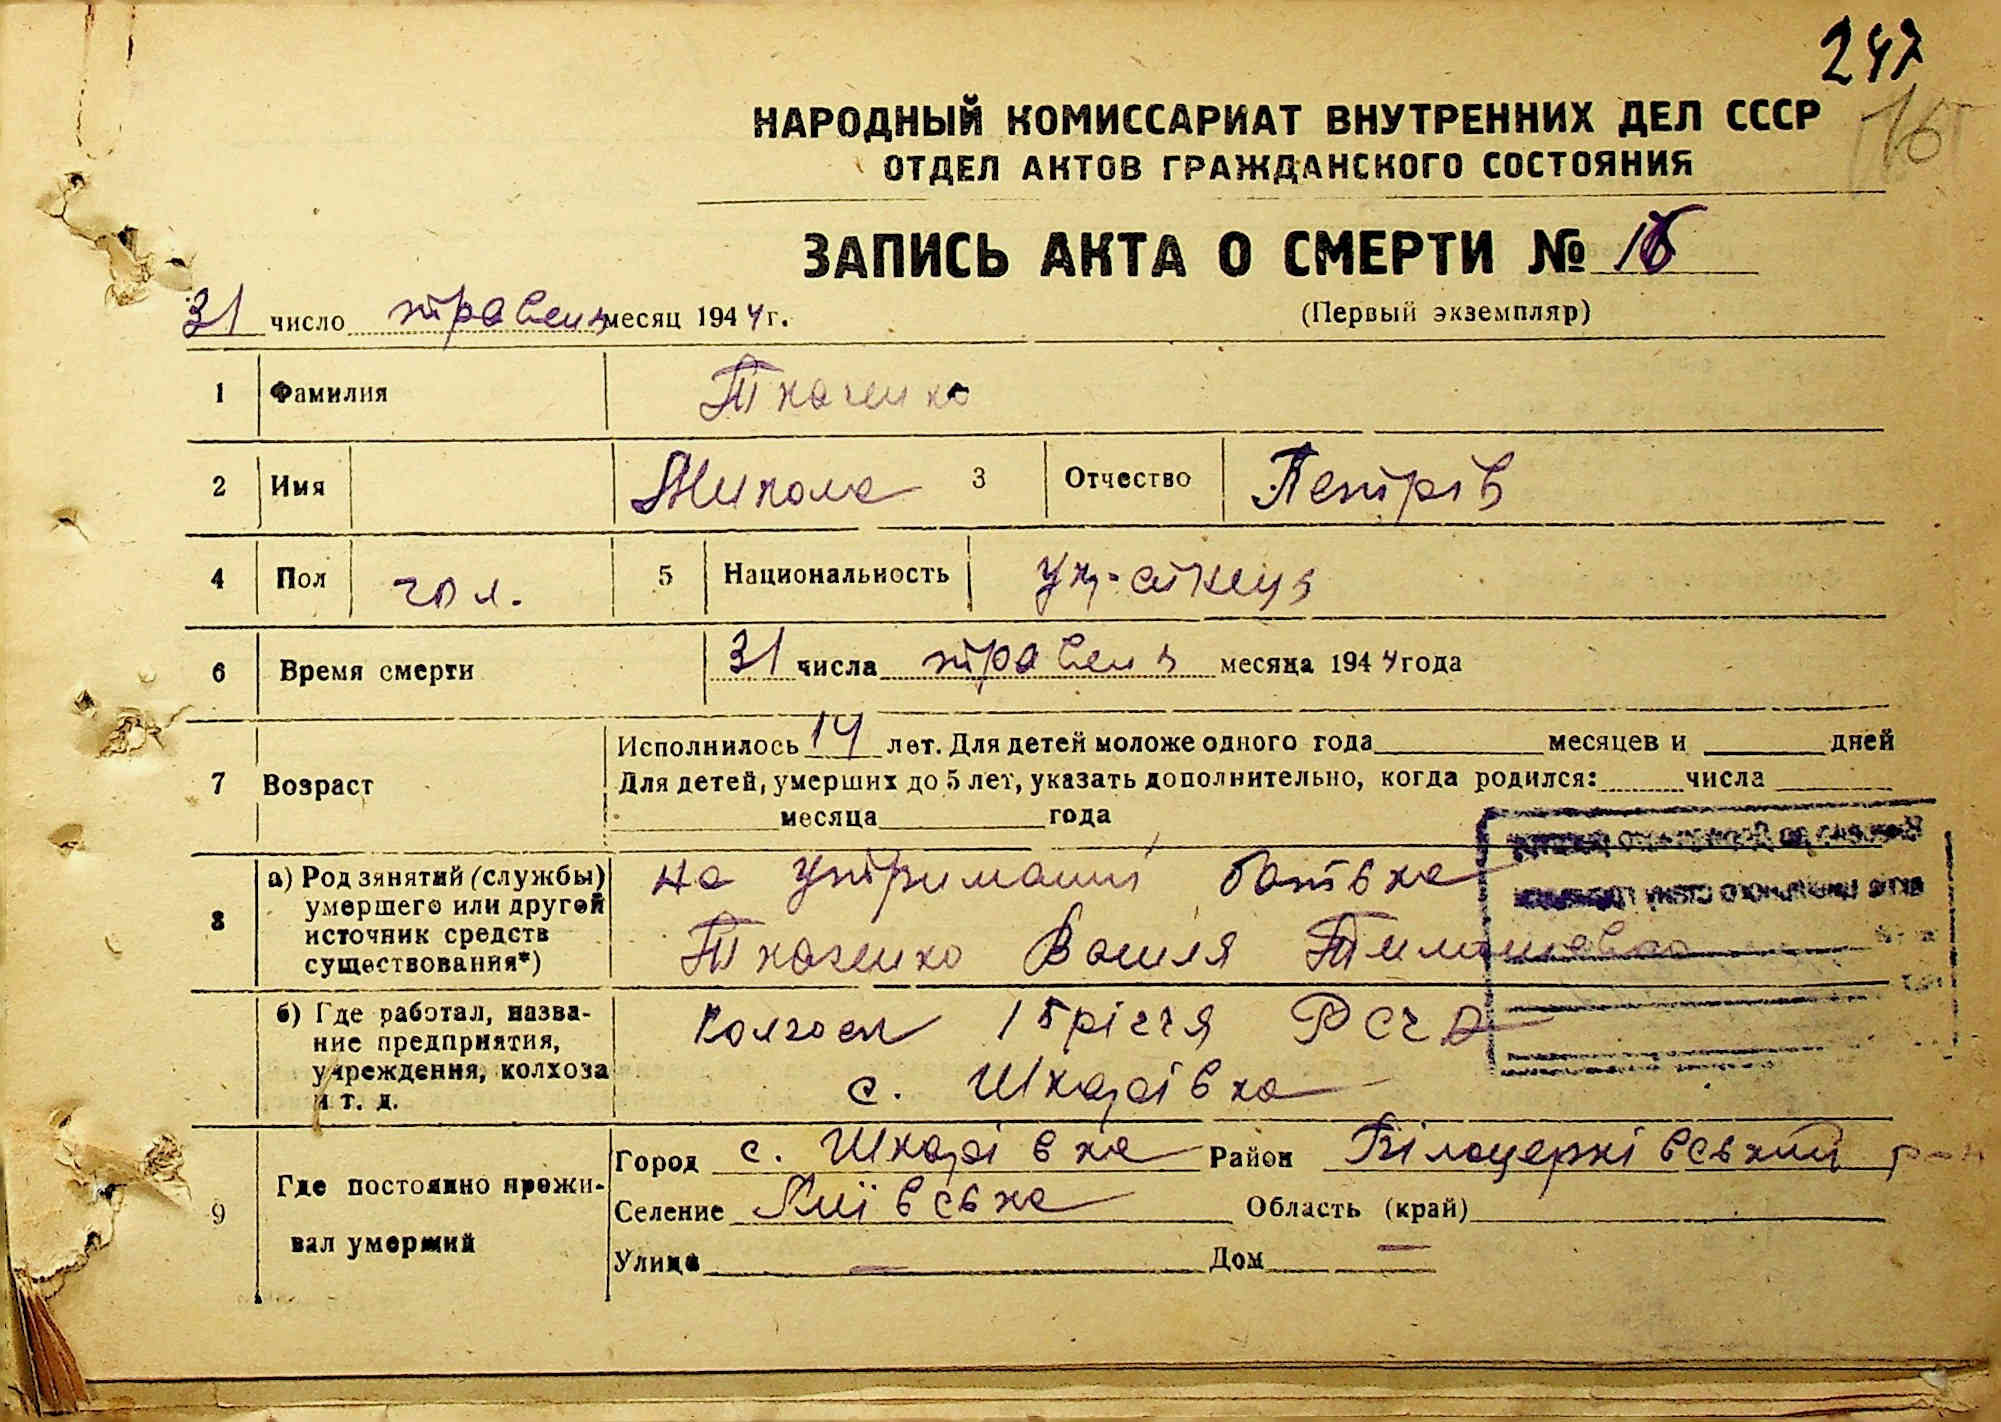 247
16
НАРОДНЫЙ КОМИССАРИАТ ВНУТРЕННИХ ДЕЛ СССР
ОТДЕЛ АКТОВ ГРАЖДАНСКОГО СОСТОЯНИЯ
ЗАПИСЬ АКТА О СМЕРТИ № 16
31 число травень месяц 1944 г.
(Первый экземпляр)
1 Фамилия Ткаченко
2 Имя Микола 3 Отчество Петрів
4 Пол чол. 5 Национальность укр-аїнець
6 Время смерти 31 числа травень месяца 1944 года
Исполнилось 14 лет. Для детей моложе одного года месяцев и дней
7 Возраст Для детей, умерших до 5 лет, указать дополнительно, когда родился: числа
месяца года
8 а) Род занятий (службы) умершего или другой источник средств существования*) на утриманні батька
Ткаченко Василя
б) Где работал, название предприятия, учреждения, колхоза и т. д. Колгосп 15річчя РСЧА
с. Шкарівка
9 Где постоянно проживал умерший Город с. Шкарівка Район Білоцерківський р-н
Селение Київська Область (край)
Улица — Дом —